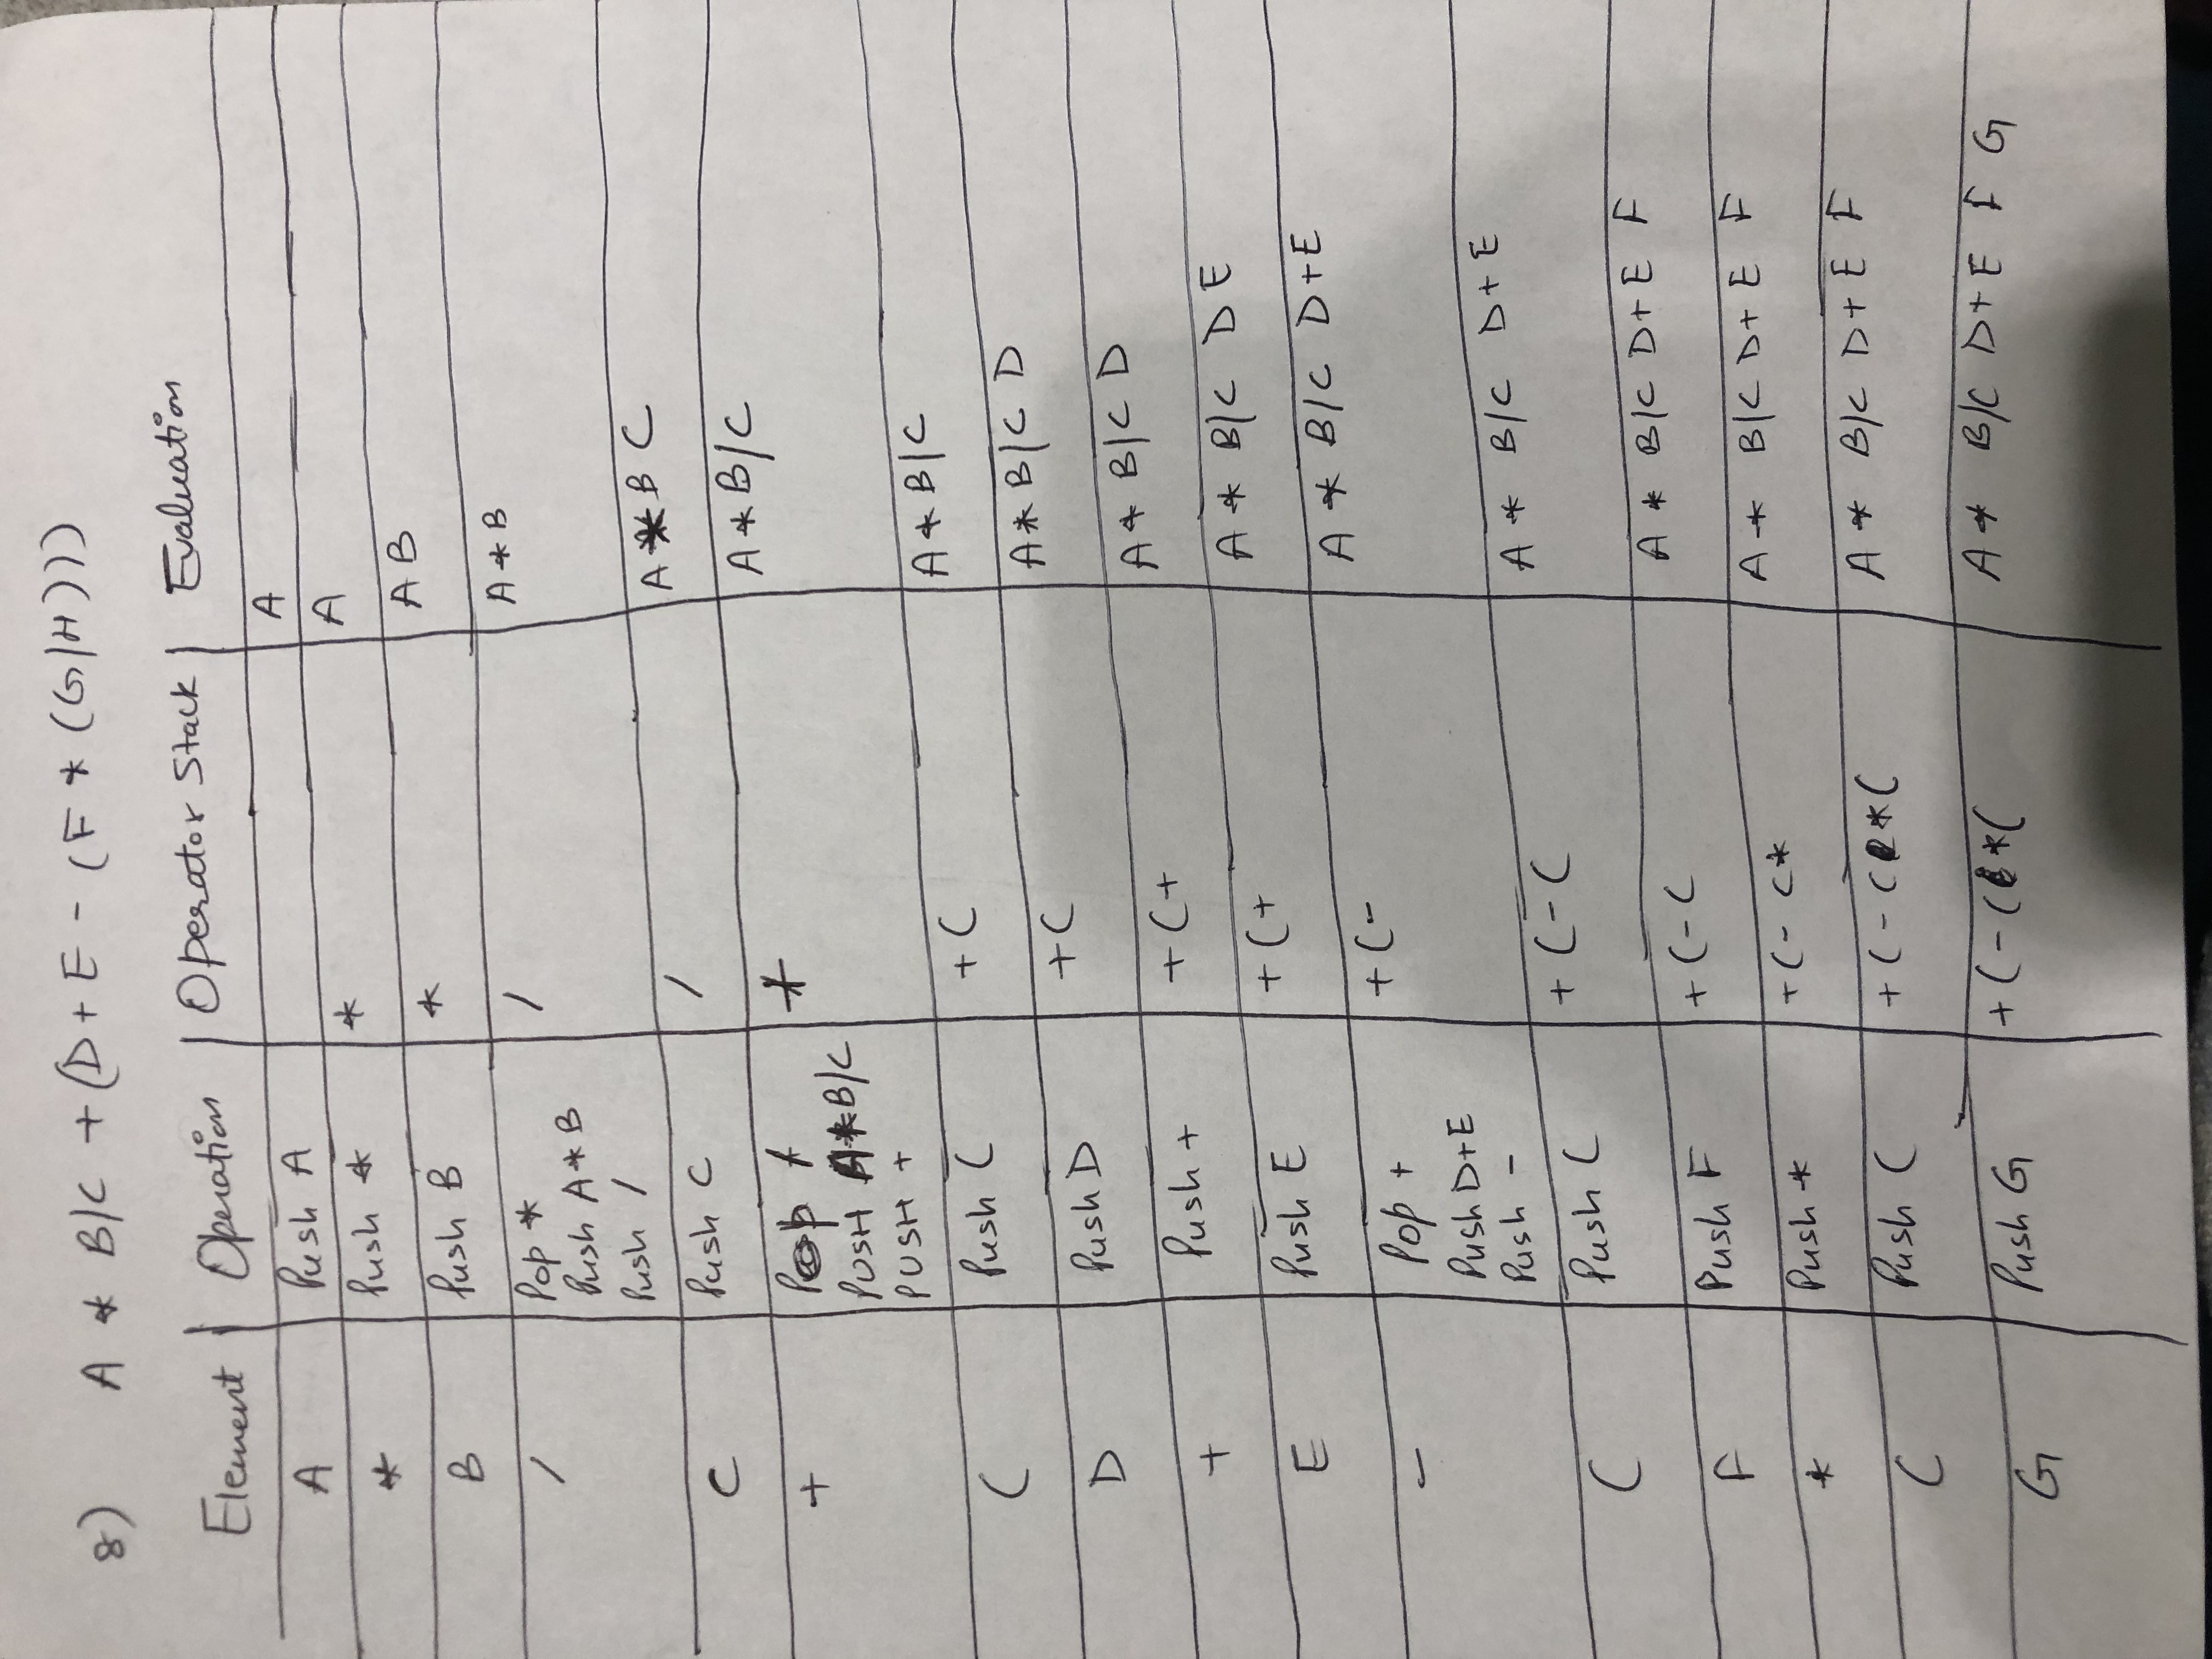 8) A * B/C + (D + E - (F * (G/H)))
Element | Operation | Operator Stack | Evaluation
A | Push A | | A
* | Push * | * | A
B | Push B | * | A B
/ | Pop * | / | A * B
Push A * B
Push /
C | Push C | / | A * B C
+ | Pop / | + | A * B/C
PUSH A * B/C
PUSH +
( | Push ( | + ( | A * B/C
D | Push D | + ( | A * B/C D
+ | Push + | + ( + | A * B/C D
E | Push E | + ( + | A * B/C D E
- | Pop + | + ( - | A * B/C D+E
Push D+E
Push -
( | Push ( | + ( - ( | A * B/C D+E
F | Push F | + ( - ( | A * B/C D+E F
* | Push * | + ( - ( * | A * B/C D+E F
( | Push ( | + ( - ( * ( | A * B/C D+E F
G | Push G | + ( - ( * ( | A * B/C D+E F G